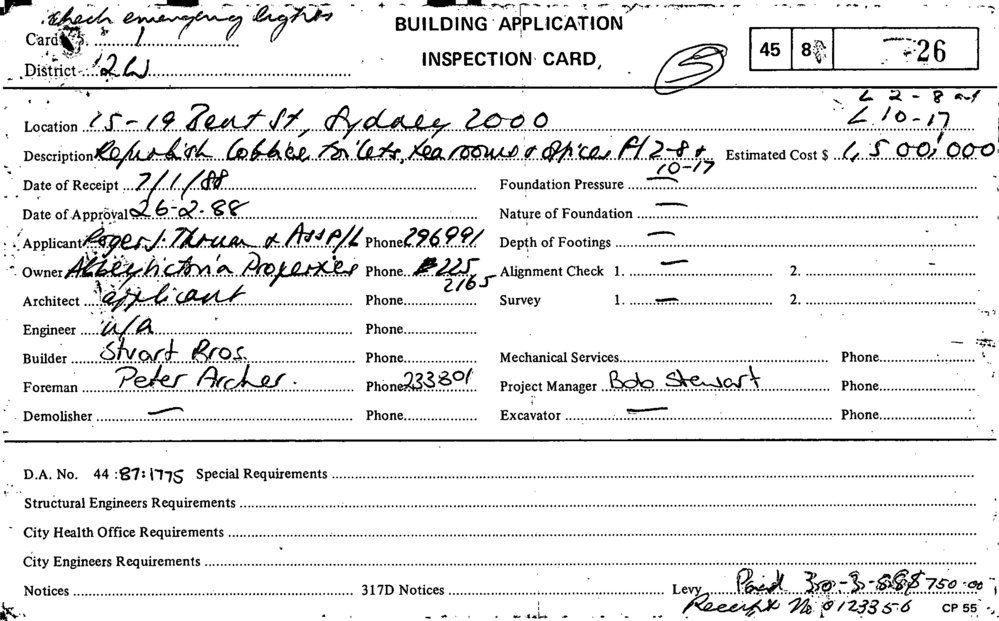 check emergency lights
BUILDING APPLICATION
INSPECTION CARD,
Card 1
45 8 26
District 2W
L 2-8 and
L 10-17
Location 15-19 Bent St, Sydney 2000
Description Refurbish lobbies toilets, tea rooms & offices Fl 2-8 + 10-17 Estimated Cost $ 1,500,000
Date of Receipt 7/1/88 Foundation Pressure —
Date of Approval 26-2-88 Nature of Foundation —
Applicant Roger J. & Ass P/L Phone 296991 Depth of Footings —
Owner Properties Phone 225 2165 Alignment Check 1. — 2.
Architect applicant Phone Survey 1. — 2.
Engineer n/a Phone
Builder Stuart Bros. Phone Mechanical Services Phone
Foreman Peter Archer. Phone 233801 Project Manager Bob Stewart Phone
Demolisher — Phone Excavator — Phone
D.A. No. 44:87:1775 Special Requirements
Structural Engineers Requirements
City Health Office Requirements
City Engineers Requirements
Notices 317D Notices Levy Paid 30-3-88 $750.00
Receipt No 0123356 CP 55